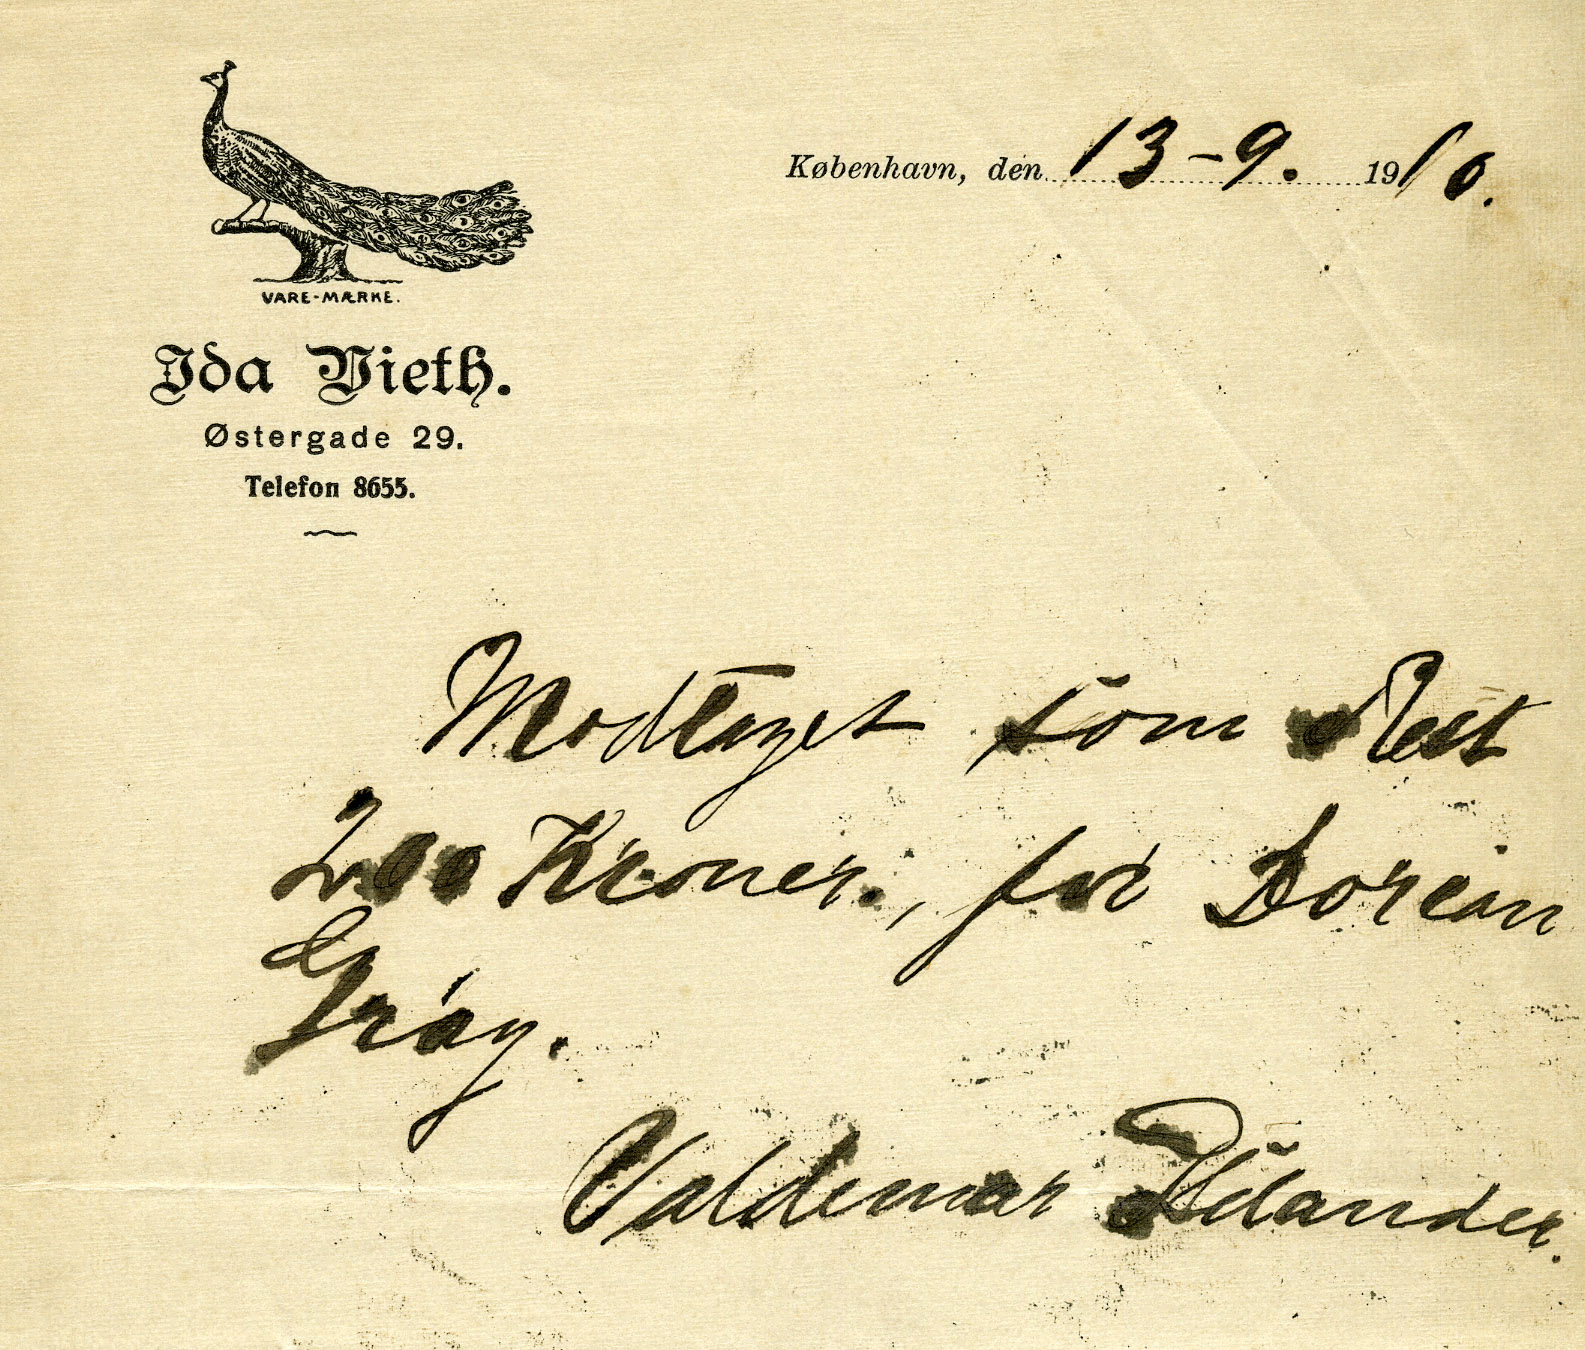 VARE-MÆRKE.
Ida Vieth.
Østergade 29.
Telefon 8655.
København, den 13-9. 1910.
Modtaget som Rest
200 Kroner., for Dorian
Gray.
Valdemar